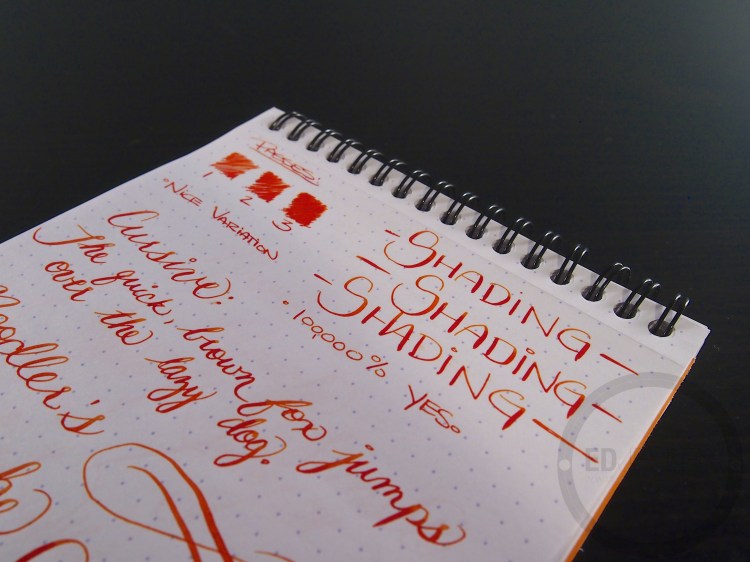 PASSES:
1 2 3
•NICE VARIATION
-SHADING-
-SHADING-
-SHADING-
•100,000%
YES.
Cursive:
The quick, brown fox jumps
over the lazy dog.
Noodler's
ED.